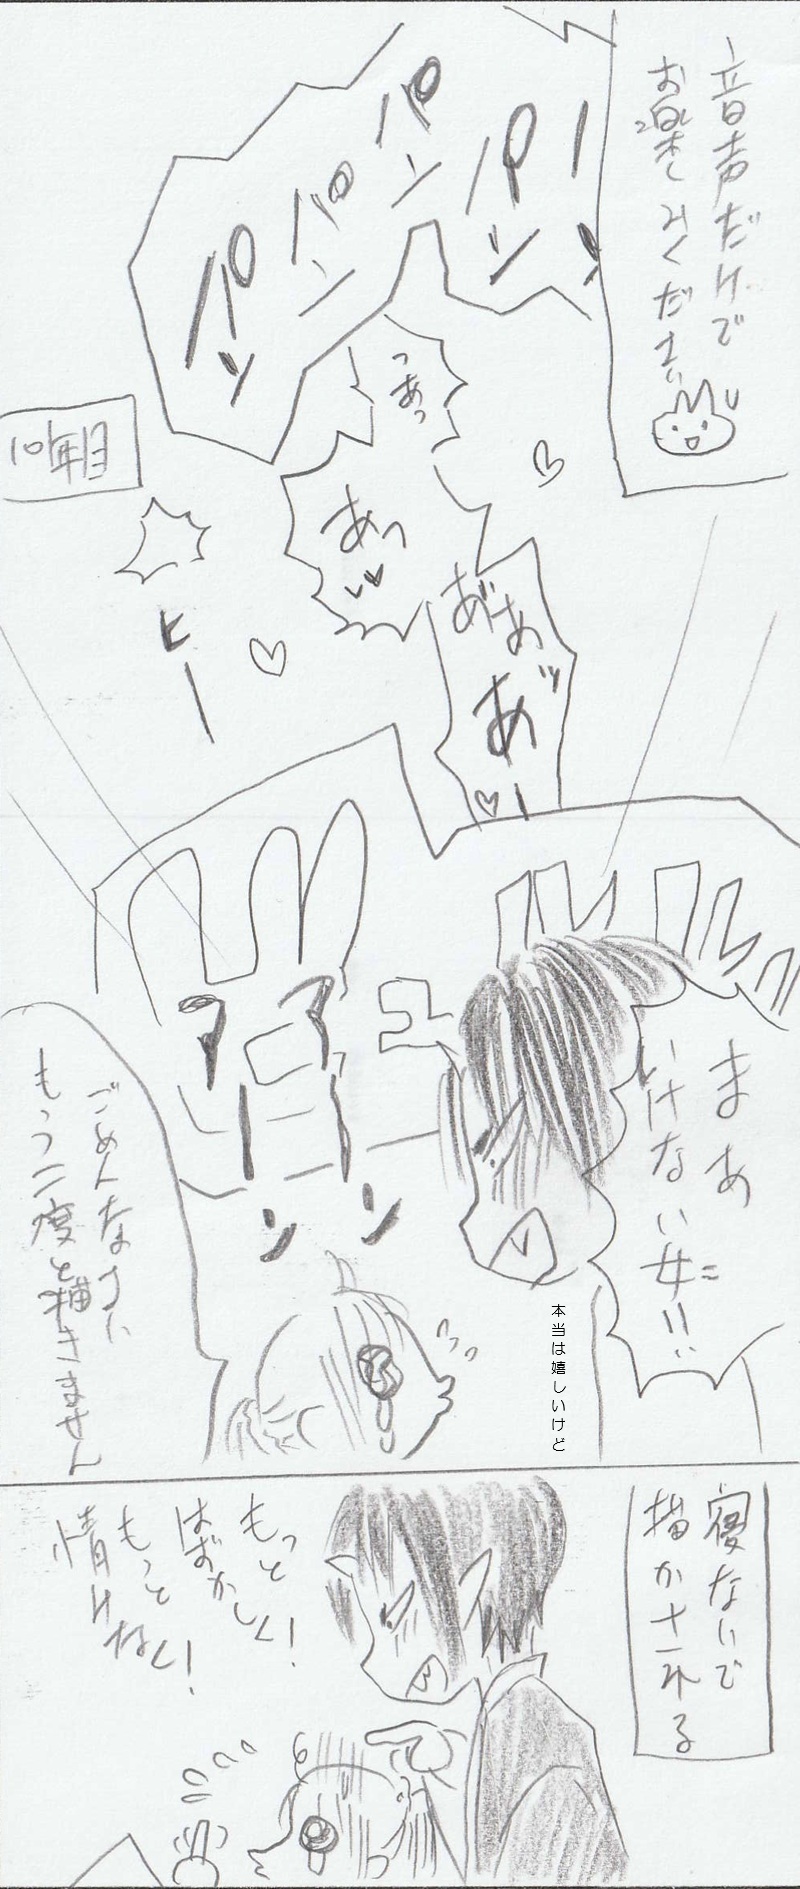 音声だけで
お楽しみください
パン
パン
パン
パン
つあっ
あっ
10年目
ああ
あ゛ッー
ヒー
まあ
いけない女!!
本当は嬉しいけど
ごめんなさい
もう二度と描きません
寝ないで
描かされる
もっと
はずかしく!
もっと
情けなく!